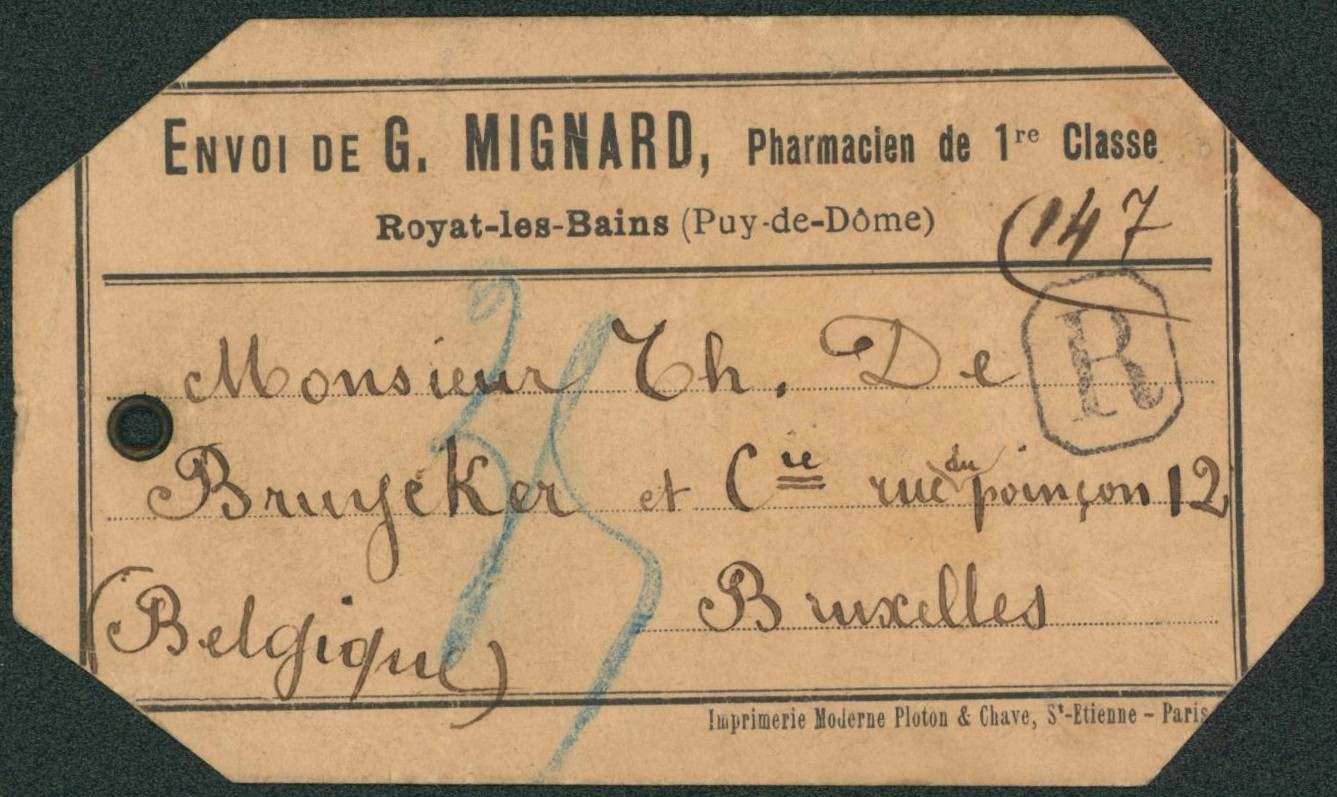 ENVOI DE G. MIGNARD, Pharmacien de 1re Classe
Royat-les-Bains (Puy-de-Dôme)
(147
R
35
Monsieur Th. De
Bruycker et Cie rue du poinçon 12
(Belgique) Bruxelles
Imprimerie Moderne Ploton & Chave, St-Etienne - Paris